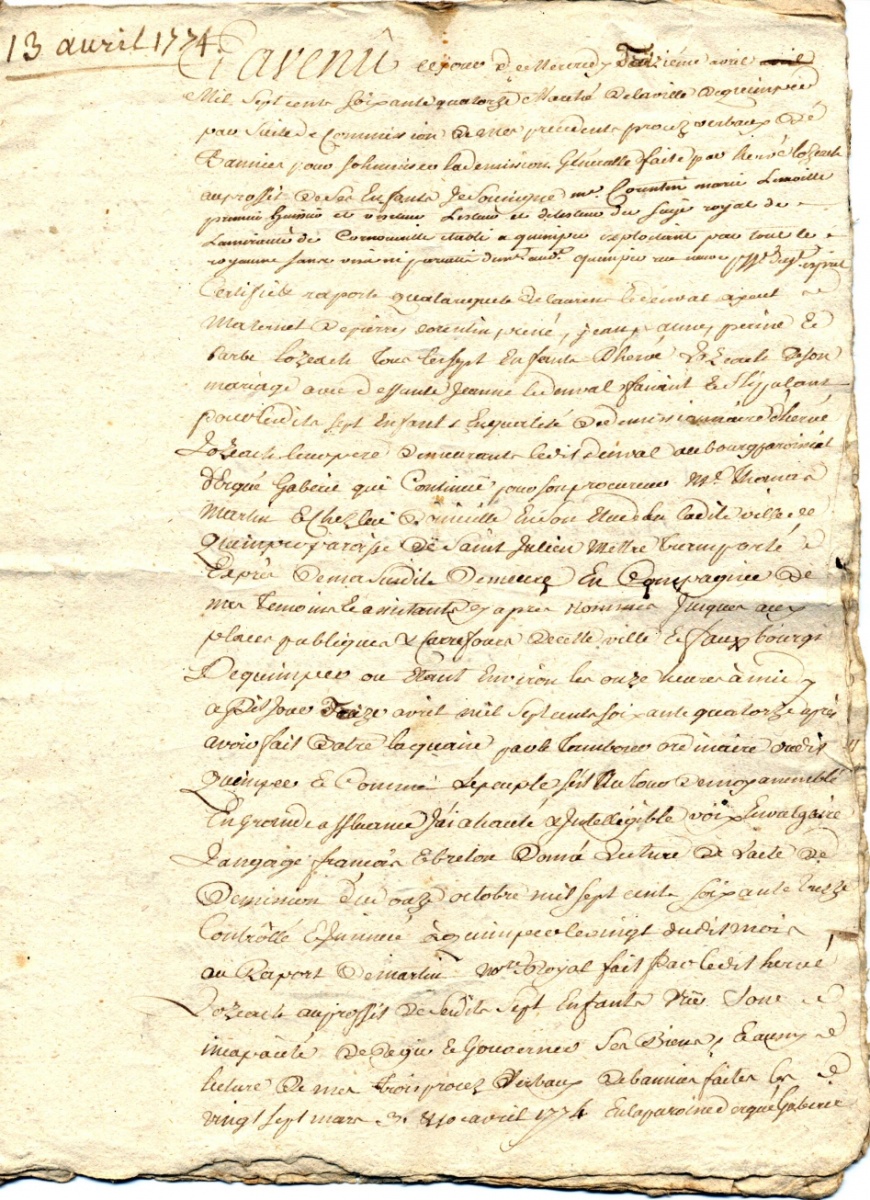 13 avril 1774.
Et avenû ce jour de Mercredy Treizième avril avril
Mil Sept cents Soixante quatorze Marché de la ville de quimper
par Suite de Commission de mes précédents procez verbaux de
Bannies pour sollanniser la demission Généralle faite par hervé Lozeach
au proffit de Ses Enfants Je Soussigné me. Corentin marie
premier huissier et du Siège royal de
Lamirauté de Cornouaille etabli a quimper exploitant par tout le
royaume sans visa ni pareatis quimper rue neuve
Certifie & raporte qua la requete de laurens le denval ayeul
Maternel de pierre, corentin, rené, jean, anne, perine &
Barbe Lozeach Tous les sept Enfants d'hervé Lozeach de son
mariage avec deffunte Jeanne le denval faisant & Stipulant
pour lesdits sept Enfants En qualité de demissionnaire d'hervé
Lozeach leur pere demeurants ledit denval au bourg paroissial
d'Ergué Gaberic qui Continuë pour son procureur Me. Thomas
Martin & chez lui domicille En son Etude en ladite ville de
Quimper paroisse de Saint Julien Mettre transporté
Exprès de ma Susdite demeure En Compagnie de
mes Temoins & assistants cy après nommés Jusques aux
places publiques & Carrefours de cette ville & faux bourgs
De quimper ou Etant Environ les onze heures à midy
a dit Jour Treize avril mil Sept cents soixante quatorze après
avoir fait Batre la quaisse par le Tambour ordinaire dudit
Quimper & Comme le peuple s'est au tour de moy assemblé
En grande affluance J'ai a hauté & Intelligible voix En vulgaire
Langage francois & breton Donné Lecture de Lacte de
Demission du onze octobre mil sept cents soixante treize
Contrôllé & Insinué à quimper le vingt dudit mois
au Raport de martin nore. Royal fait par ledit hervé
Lozeach au proffit de Sesdits Sept Enfants Vûe Son
incapacité de Regir & Gouverner Ses Biens, & aussy
lecture de mes trois procez Verbaux de bannies faites les
vingt sept mars 3. & 10 avril 1774 En la paroisse d'ergué Gaberic